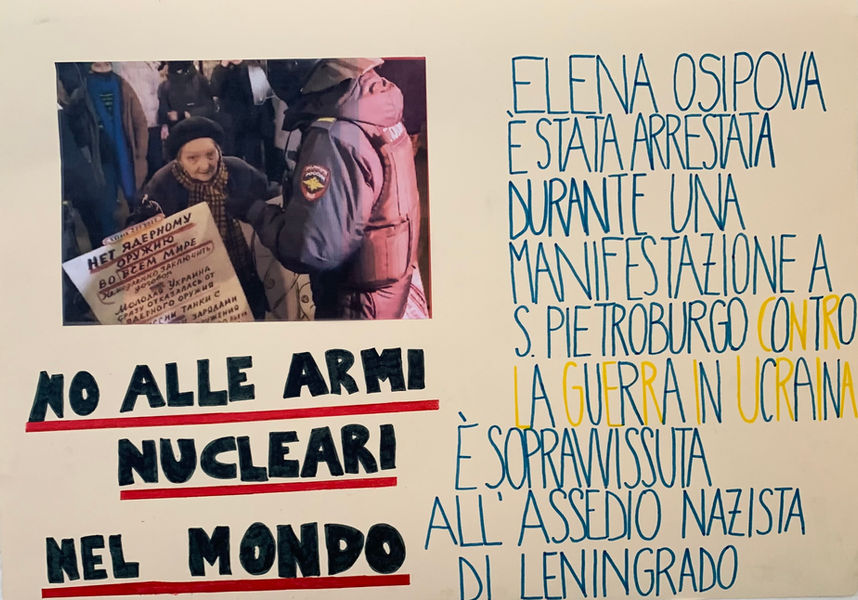 НЕТ ЯДЕРНОМУ
ОРУЖИЮ
ВО ВСЕМ МИРЕ
НЕМЕДЛЕННО ЗАКЛЮЧИТЬ
ДОГОВОР
МОЛОДЕЦ УКРАИНА
СРАЗУ ОТКАЗАЛАСЬ ОТ
ЯДЕРНОГО ОРУЖИЯ
ТАНКИ С
ЗАРОДАМИ
NO ALLE ARMI
NUCLEARI
NEL MONDO
ELENA OSIPOVA
È STATA ARRESTATA
DURANTE UNA
MANIFESTAZIONE A
S. PIETROBURGO CONTRO
LA GUERRA IN UCRAINA
È SOPRAVVISSUTA
ALL'ASSEDIO NAZISTA
DI LENINGRADO